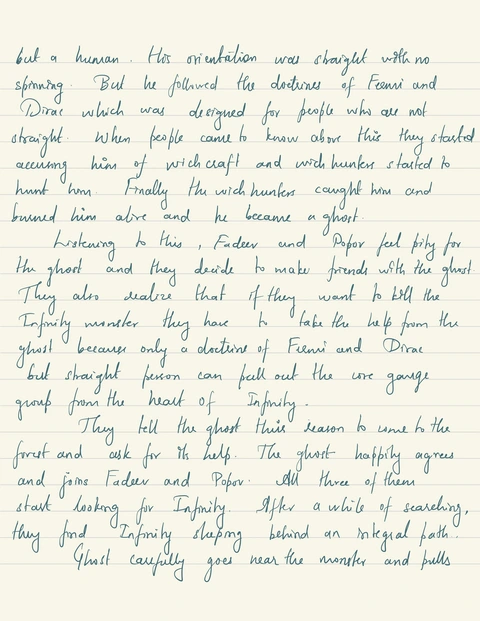 but a human. His orientation was straight with no
spinning. But he followed the doctrines of Fermi and
Dirac which was designed for people who are not
straight. When people came to know above this they started
accusing him of wichcraft and wich hunters started to
hunt him. Finally the wich hunters caught him and
burned him alive and he became a ghost.
Listening to this, Fadeev and Popov feel pity for
the ghost and they decide to make friends with the ghost.
They also realize that if they want to kill the
Infinity monster they have to take the help from the
ghost because only a doctrine of Fermi and Dirac
but straight person can pull out the core gauge
group from the heart of Infinity.
They tell the ghost their reason to come to the
forest and ask for its help. The ghost happily agrees
and joins Fadeev and Popov. All three of them
start looking for Infinity. After a while of searching,
they find Infinity sleeping behind an integral path.
Ghost carefully goes near the monster and pulls